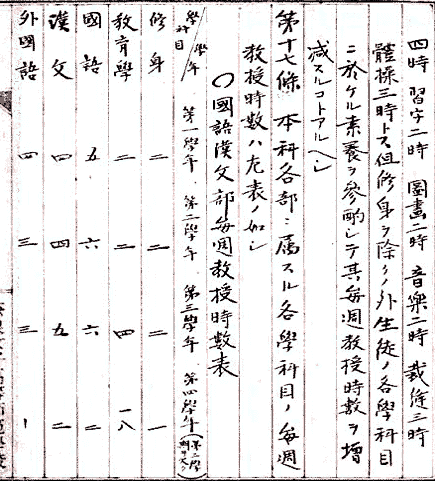 四時 習字二時 圖畫二時 音樂二時 裁縫三時
體操三時トス但修身ヲ除クノ外生徒ノ各學科目
ニ於ケル素養ヲ參酌シテ其每週教授時數ヲ增
減スルコトアルヘシ
第十七條 本科各部ニ屬スル各學科目ノ每週
教授時數ハ左表ノ如シ
〇國語漢文部每週教授時數表
學科目/學年 第一學年 第二學年 第三學年 第四學年
修身 二 二 二 一
教育學 二 二 四 一八
國語 五 六 六 二
漢文 四 四 五 二
外國語 四 三 三 ー